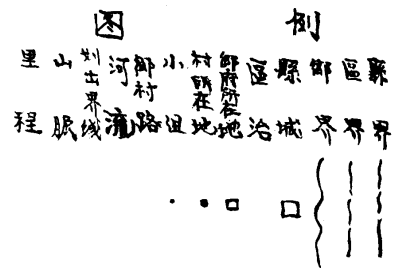 图例
縣界
區界
鄉界
縣城
區治
鄉府所在地
村所在地
小组
鄉村路
河流
划出界域
山脈
里程